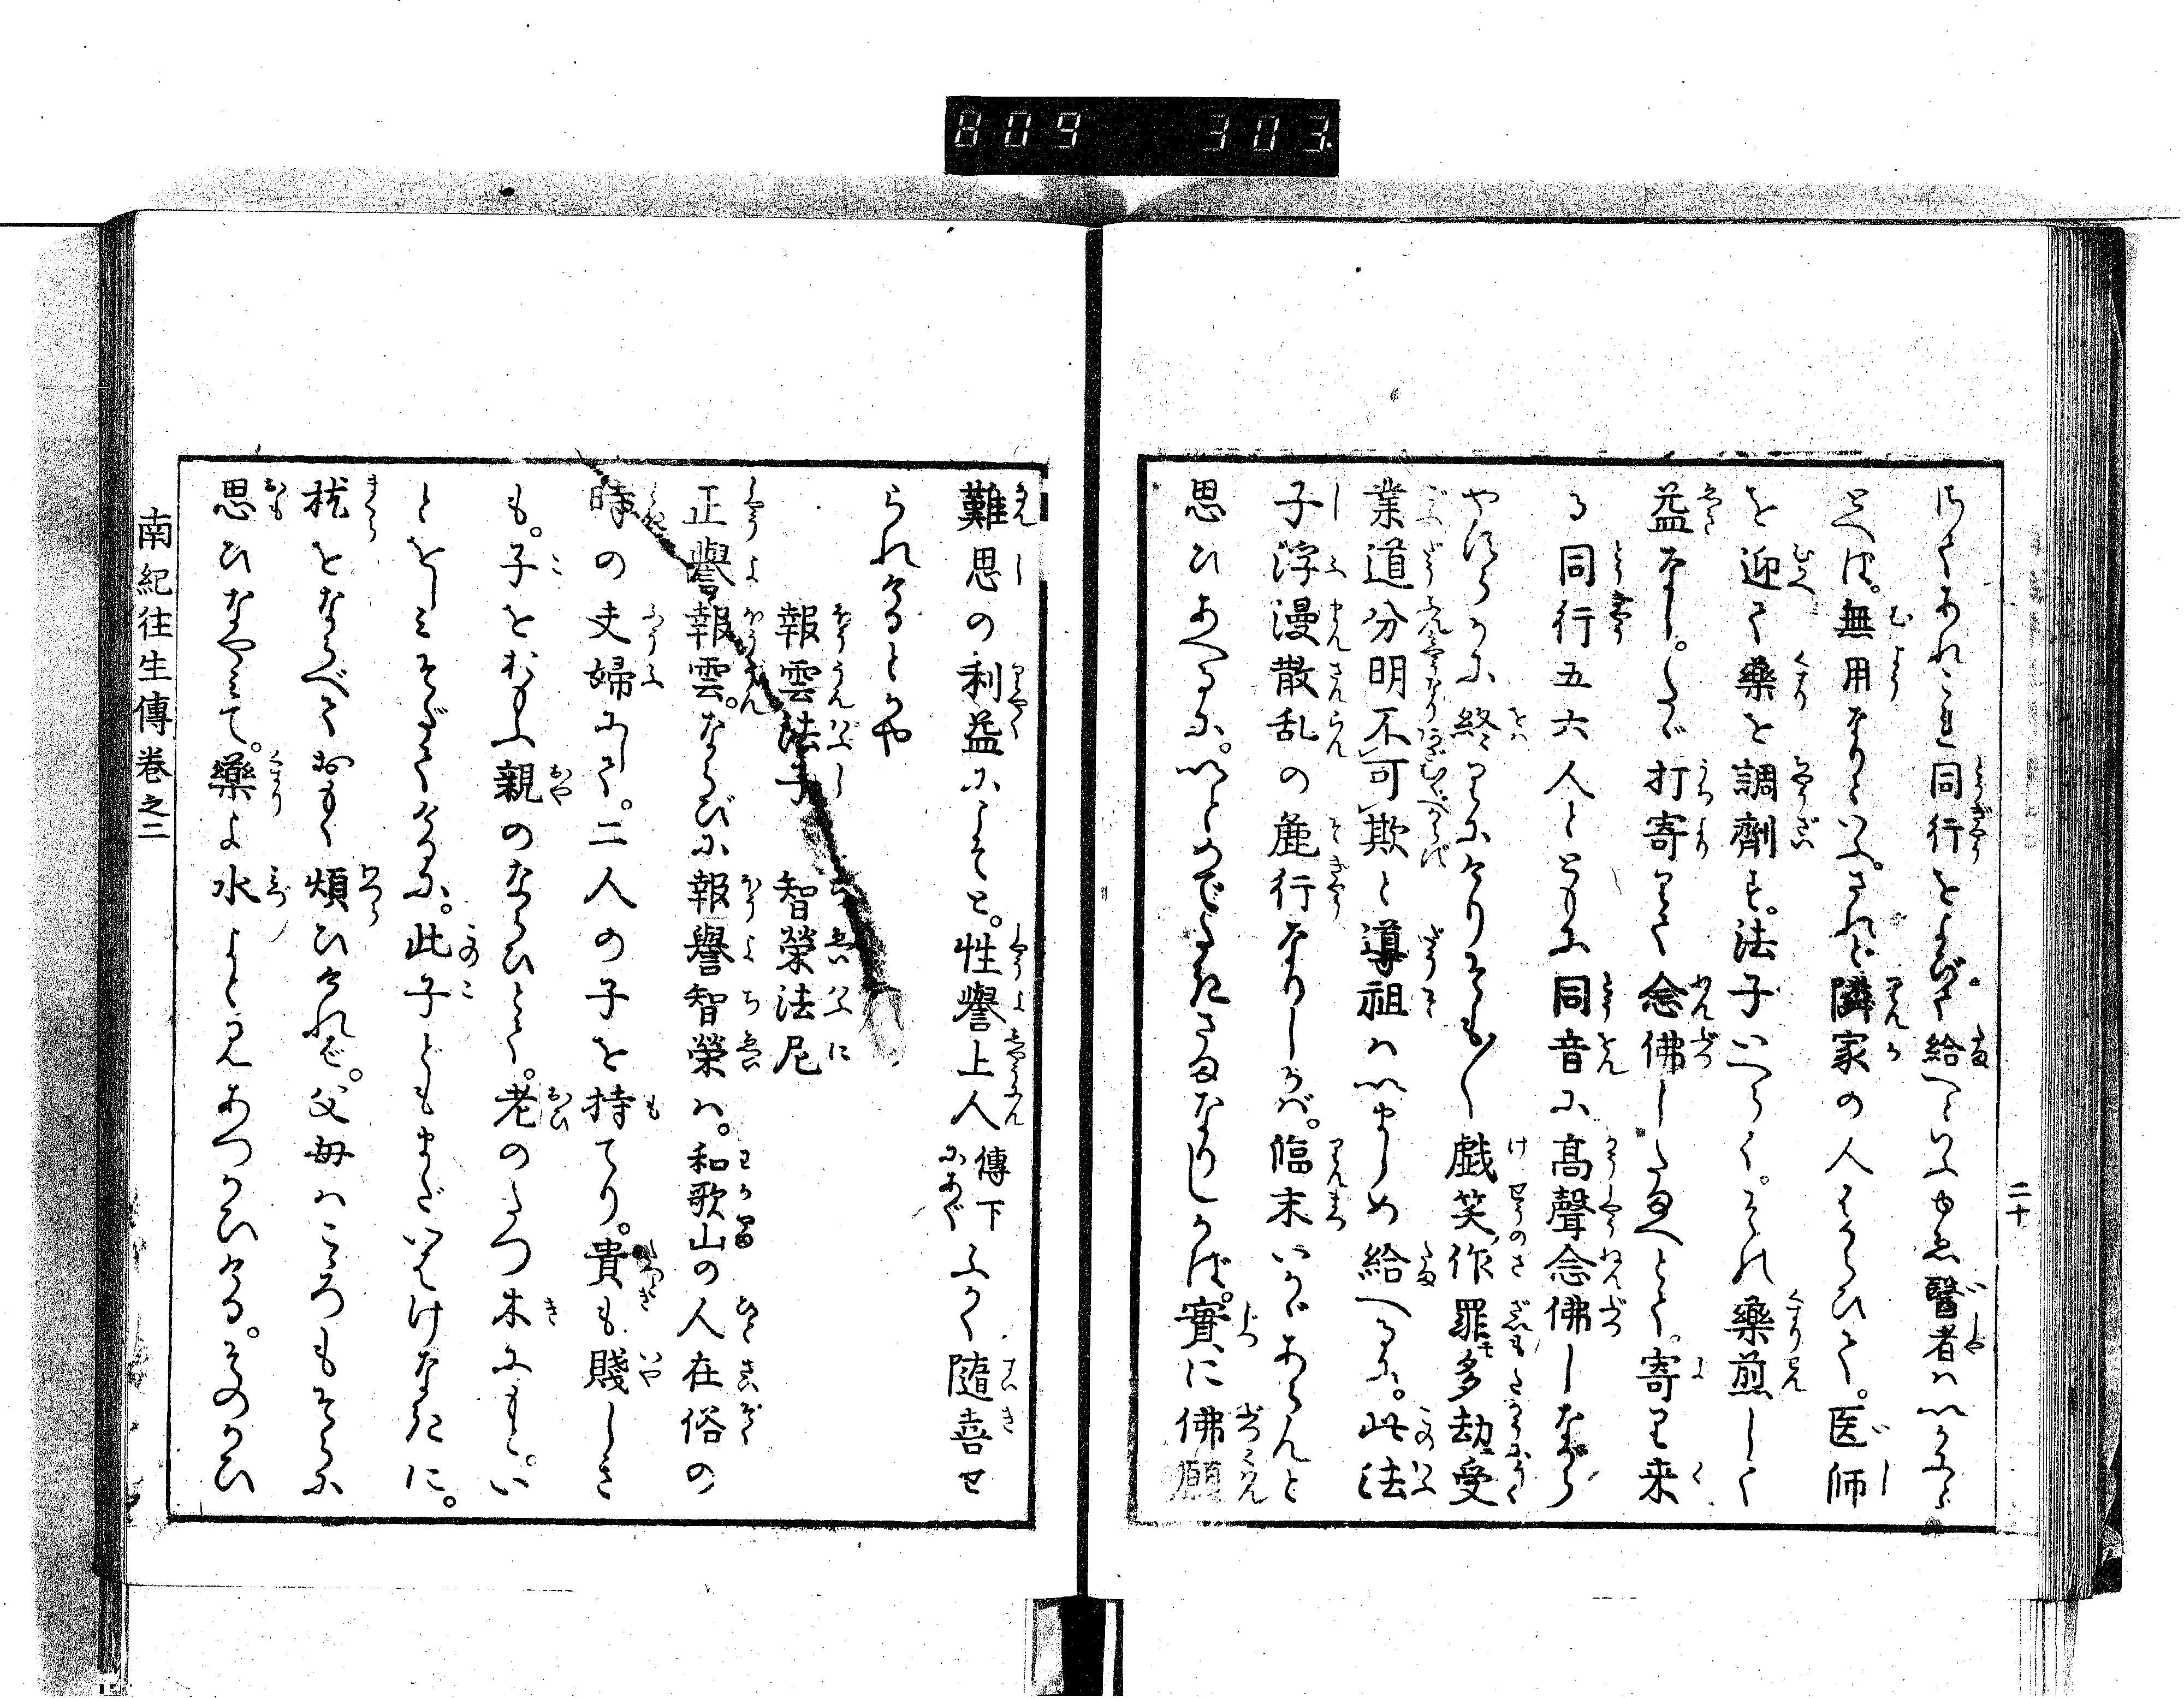 809 303.
二十
はくあれこれ同行をよびて給へといふゆゑ醫者ハいかにと
とへば。無用なりといふ。されど隣家の人はからひて。医師
を迎て藥を調劑す。法子いはく。それ藥煎じて
益なし。たゞ打寄りて念佛したまへとて。寄り来
る同行五六人とともに同音に高聲念佛しながら
やすらかに終りにけりそも〳〵戯笑作罪多劫受
業道分明不可欺と導祖ハいましめ給へるに。此法
子浮漫散乱の麁行なりしかバ。臨末いかゞあらんと
思ひあへるに。いとめでたきさまなりしかば。實に佛願
難思の利益にこそと。性譽上人傳下にあぐふかく隨喜せ
られけるとかや
報雲法子　智榮法尼
正譽報雲。ならびに報譽智榮ハ。和歌山の人在俗の
時の夫婦にして。二人の子を持てり。貴も賤しき
も。子をおもふ親のならひとて。老のたつ木にもと。い
とをしミそだてけるに。此子どもまだいはけなきに。
枕をならべておもく煩ひけれバ。父母ハこころもそらに
思ひなやミて。藥よ水よとミえあつかひける。そのかひ
南紀往生傳巻之二